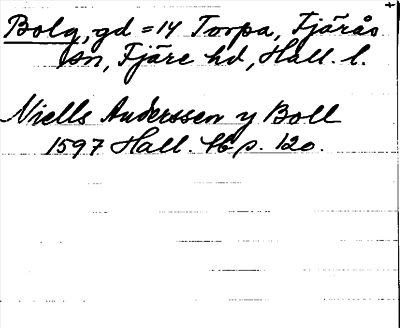 Bolg, gd = 14 Torpa, Fjärås
sn, Fjäre hd, Hall. l.
Niells Anderssen y Boll
1597 Hall. lb p. 120.